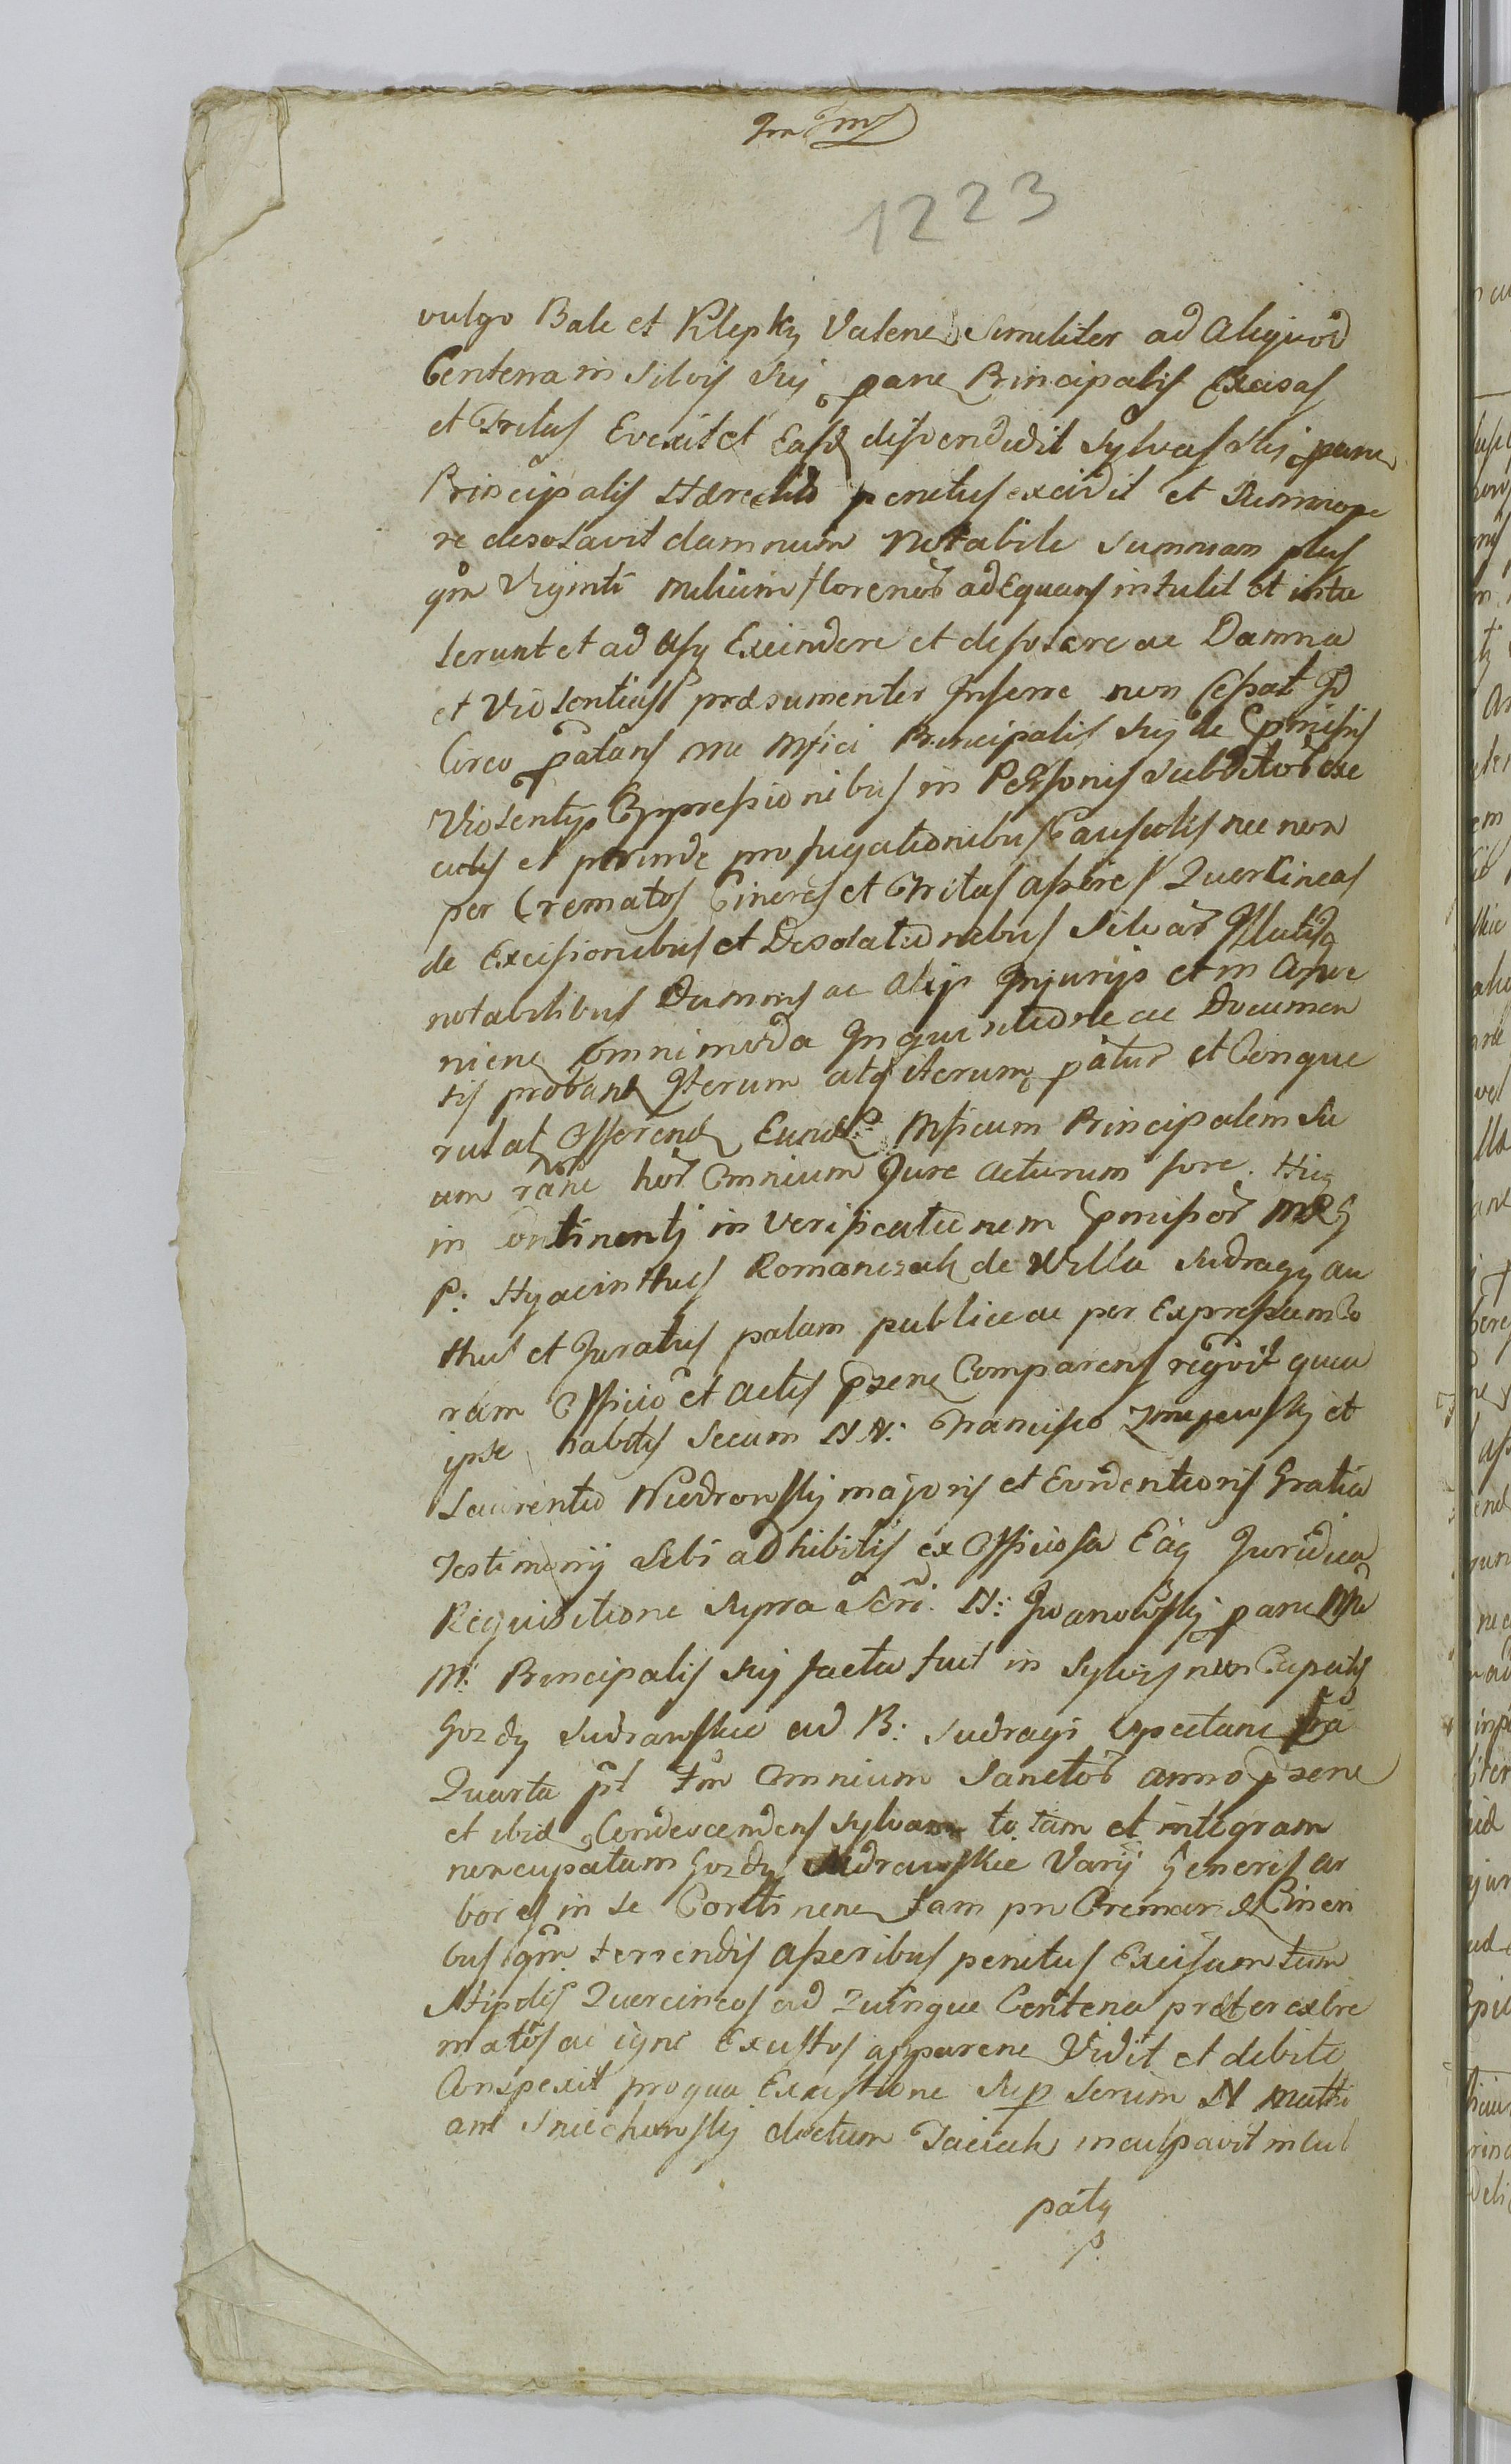 1223
vulgo Bale et Klepky Valene similiter ad Aliquod
Centena in silvis sui pane Principalis Excisas
et Tritas Evexit et Easd dispendidit sylvas sui pane
Principalis Hæredit penitus excidit et summope
re desolavit damnum Notabile summam plus
qm Viginti milium florenor adEquans intulit et intu
lerunt et ad usq Excindere et desolare ac Damna
et Violentias præsumenter Inferre non Cessat Id
Circo patans me Mfici Principalis sui de pmissis
Violentys Oppressionibus in Personis subditor exe
cutis et proinde profugationibus Causatis nec non
per Crematos Cineres et Tritas asseres Quercineas
de Excisionibus et Desolationibus silvar Illatisq
notabilibus Damnis ac Alys Injurys et in Conve
niene omnimoda Inquisitione ac Documen
tis proband Iterum atq iterum patur et Conque
rulat Offerend Eund Mficum Principalem su
um rane hor Omnium Jure acturum fore. Hic
in Continenti in Verificationem pmissor MRG
P: Hyacinthus Romanczak de Villa Sudragy au
thus et Juratus palam publice ac per Expressum Co
ram Officio et actis psene Comparens regvit quia
ipse habitis Secum NN: Francisco Zmyewsky et
Laurentio Niedronsky majoris et Evidentioris Gratia
Testimony sibi adhibitis ex Officiosa Eaq Juridica
Requisitione supra N: Iwanowsky pane Mfi
M: Principalis sui facta fuit in Sylvis nun Cupatis
Gozdy Sudrawskie ad B: Sudragi spectane fra
Quarta pt fm Omnium Sanctor anno psene
et ibid Condescendens sylvam totam et integram
nuncupatam Gozdy Sudrawskie Vary Generis ar
bores in se Continene tam pn Cremand Cineri
bus qm terrendis asseribus penitus Excisam tum
Stipites Quercineos ad Quinque Centena præter exkre
matos ac igne Exustos apparene Vidit et debite
Conspexit pro qua Exustione sup N Mathi
am Sniechowsky dictum Jaciak inculpavit incul
paty